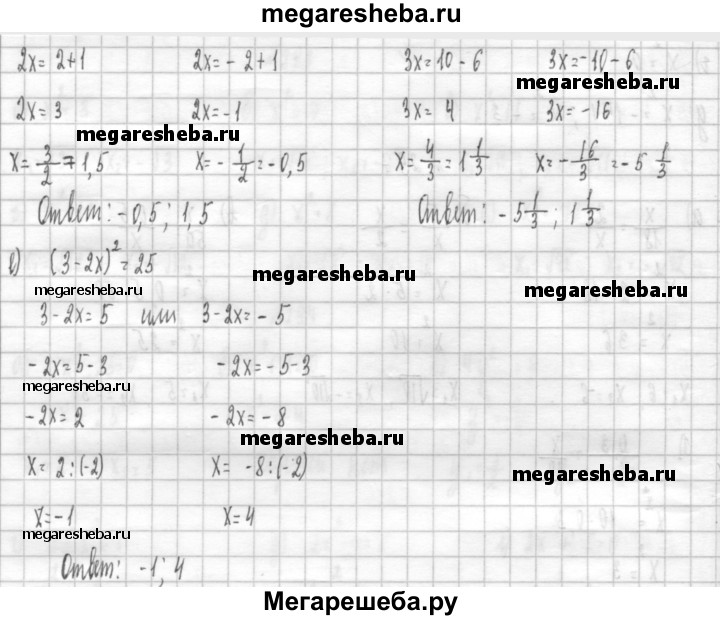 megaresheba.ru
2x = 2+1 2x = - 2+1 3x = 10 - 6 3x = -10 - 6
megaresheba.ru
2x = 3 2x = -1 3x = 4 3x = -16
megaresheba.ru
x = 3/2 = 1,5 x = - 1/2 = - 0,5 x = 4/3 = 1 1/3 x = - 16/3 = - 5 1/3
Ответ: - 0,5; 1,5 Ответ: - 5 1/3; 1 1/3
в) (3 - 2x)² = 25
megaresheba.ru
megaresheba.ru megaresheba.ru
3 - 2x = 5 или 3 - 2x = - 5
- 2x = 5 - 3 - 2x = - 5 - 3
megaresheba.ru
- 2x = 2 - 2x = - 8
megaresheba.ru
x = 2 : (-2) x = -8 : (-2)
megaresheba.ru
x = -1 x = 4
megaresheba.ru
Ответ: -1; 4
Мегарешеба.ру